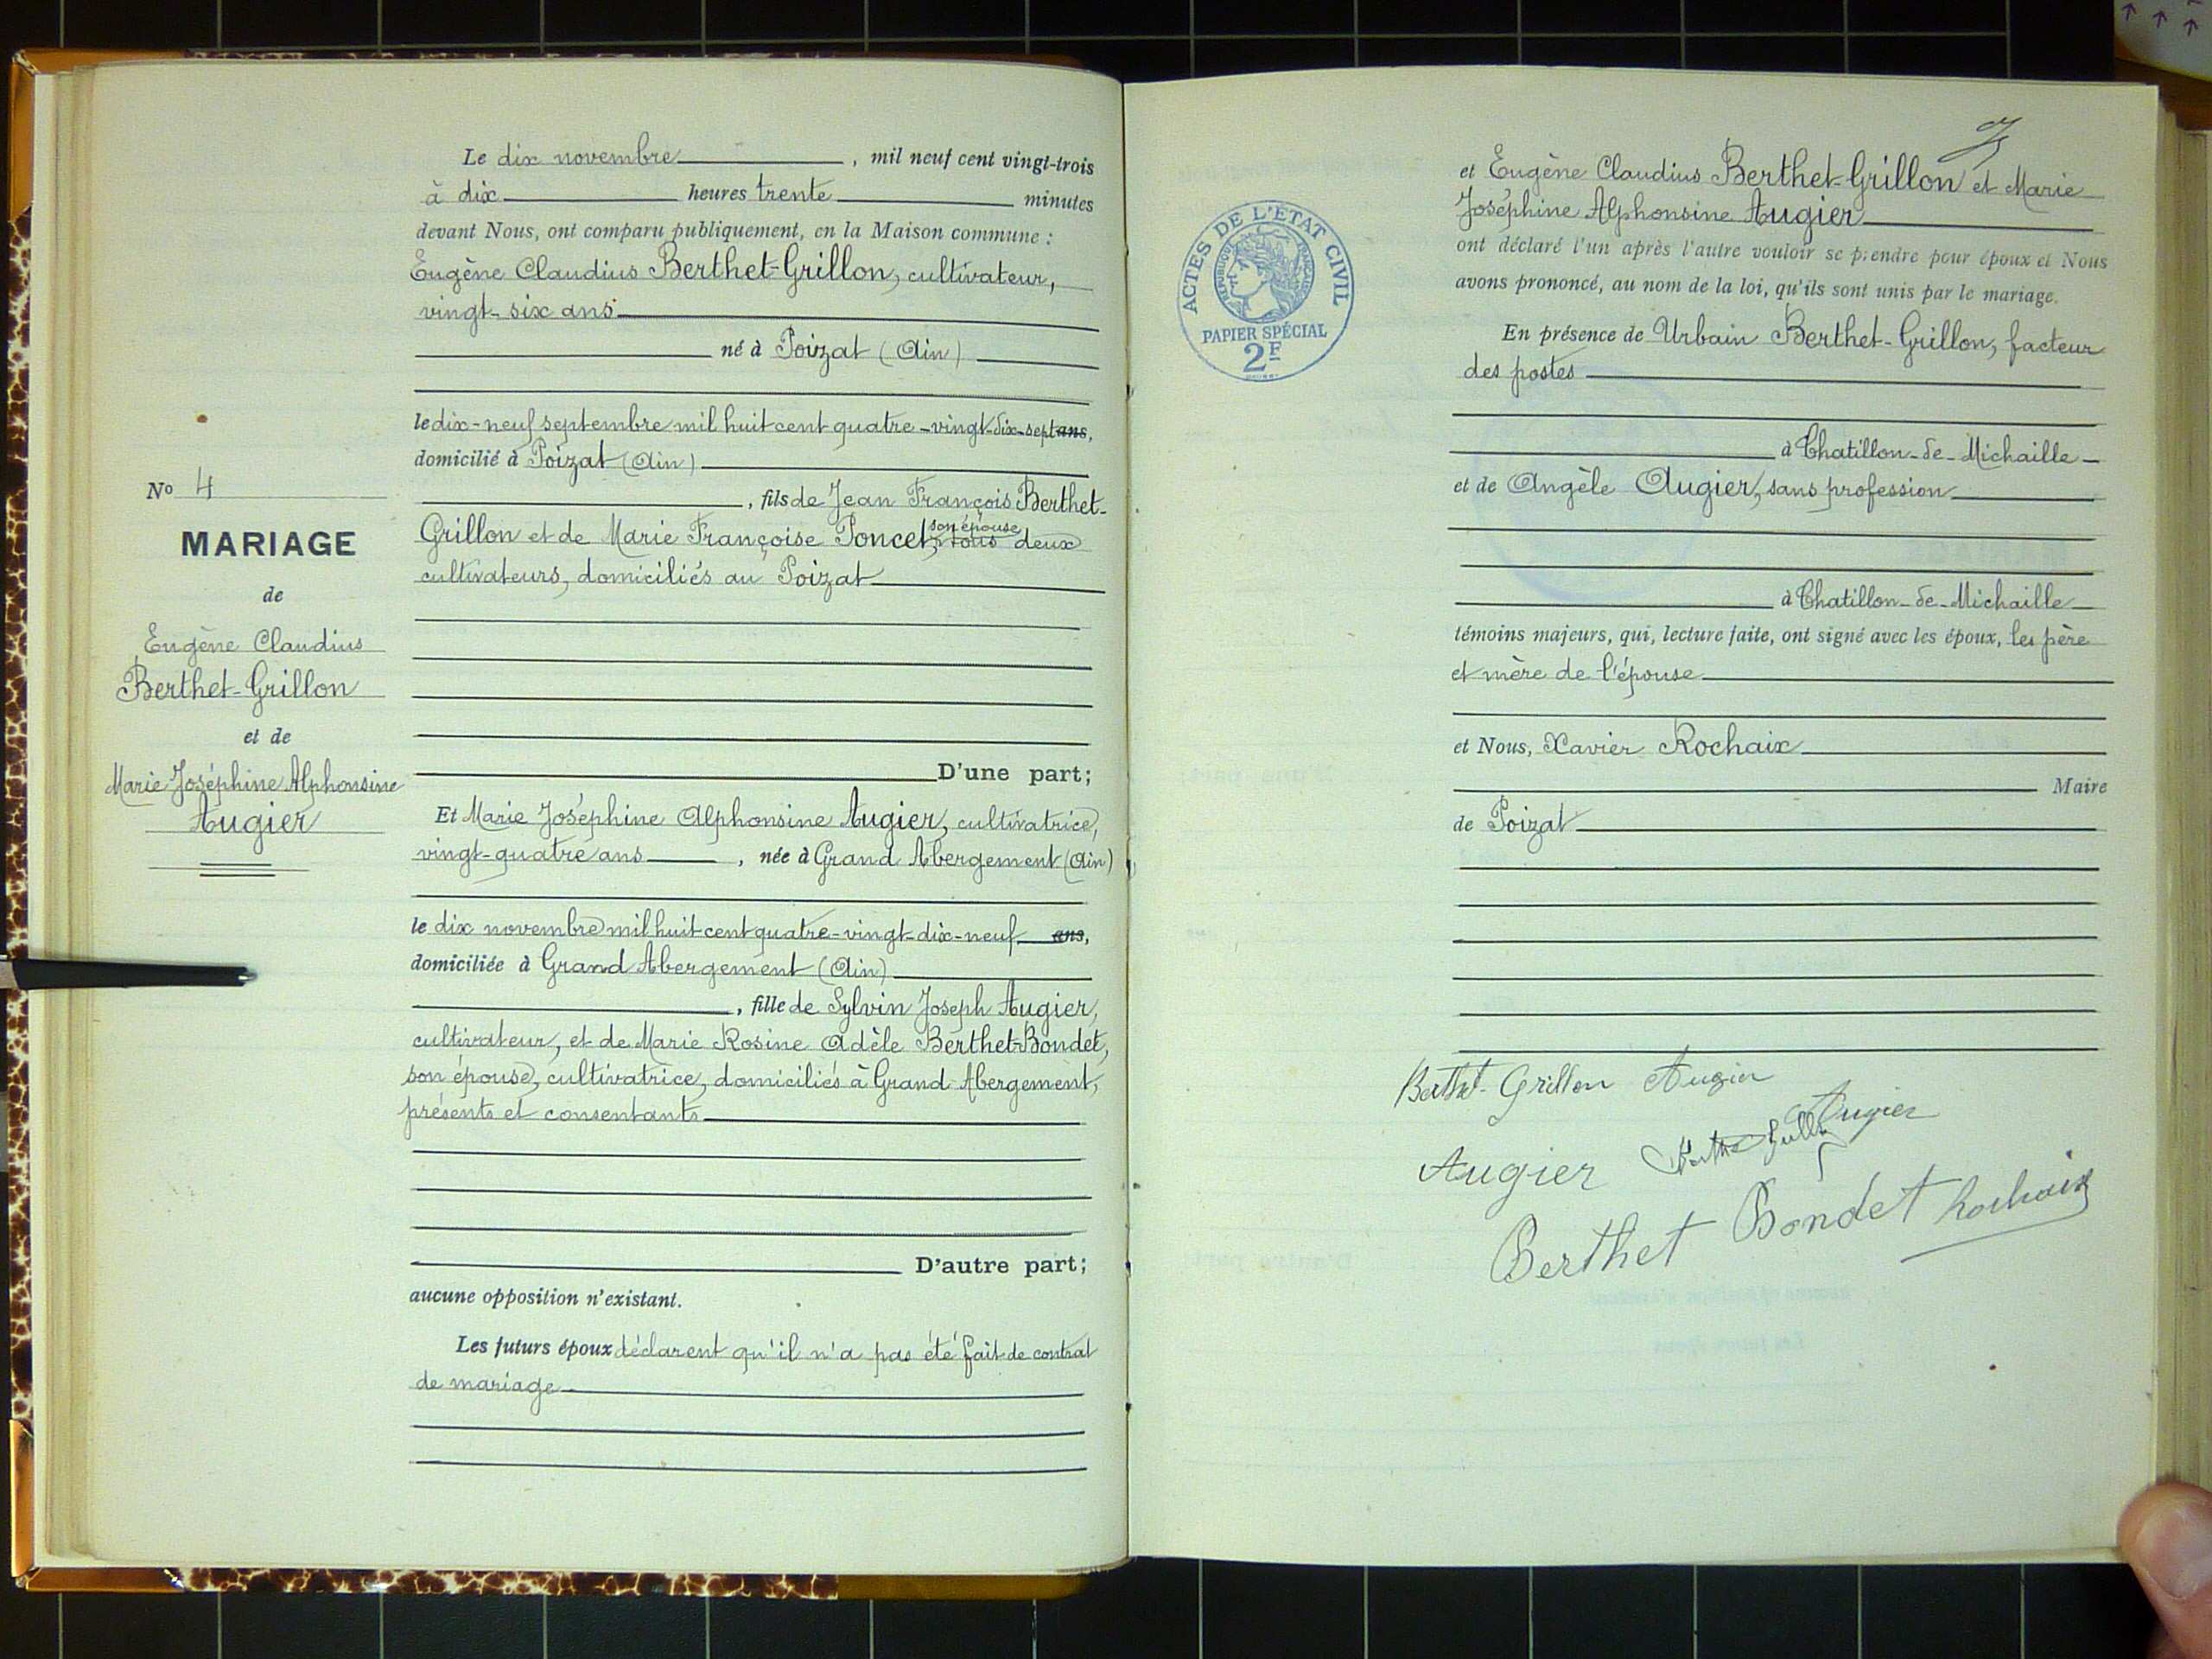 Le dix novembre, mil neuf cent vingt-trois
à dix heures trente minutes
devant Nous, ont comparu publiquement, en la Maison commune :
Eugène Claudius Berthet-Grillon, cultivateur,
vingt-six ans
né à Poizat (Ain)
le dix-neuf septembre mil huit cent quatre-vingt-dix-sept ans,
domicilié à Poizat (Ain)
, fils de Jean François Berthet-
son épouse
Grillon et de Marie Françoise Poncet, tous deux
cultivateurs, domiciliés au Poizat
D'une part;
Et Marie Joséphine Alphonsine Augier, cultivatrice,
vingt-quatre ans, née à Grand Abergement (Ain)
le dix novembre mil huit cent quatre-vingt-dix-neuf ans,
domiciliée à Grand Abergement (Ain)
, fille de Sylvin Joseph Augier,
cultivateur, et de Marie Rosine Adèle Berthet-Bondet,
son épouse, cultivatrice, domiciliés à Grand Abergement,
présents et consentants
D'autre part;
aucune opposition n'existant.
Les futurs époux déclarent qu'il n'a pas été fait de contrat
de mariage
No 4
MARIAGE
de
Eugène Claudius
Berthet-Grillon
et de
Marie Joséphine Alphonsine
Augier
ACTES DE L'ÉTAT CIVIL
RÉPUBLIQUE FRANÇAISE
PAPIER SPÉCIAL
2F
et Eugène Claudius Berthet-Grillon et Marie
Joséphine Alphonsine Augier
ont déclaré l'un après l'autre vouloir se prendre pour époux et Nous
avons prononcé, au nom de la loi, qu'ils sont unis par le mariage.
En présence de Urbain Berthet-Grillon, facteur
des postes
à Chatillon-de-Michaille
et de Angèle Augier, sans profession
à Chatillon-de-Michaille
témoins majeurs, qui, lecture faite, ont signé avec les époux, les père
et mère de l'épouse
et Nous, Xavier Rochaix
Maire
de Poizat
Berthet-Grillon Augier
Augier
Augier
Berthet Bondet Rochaix